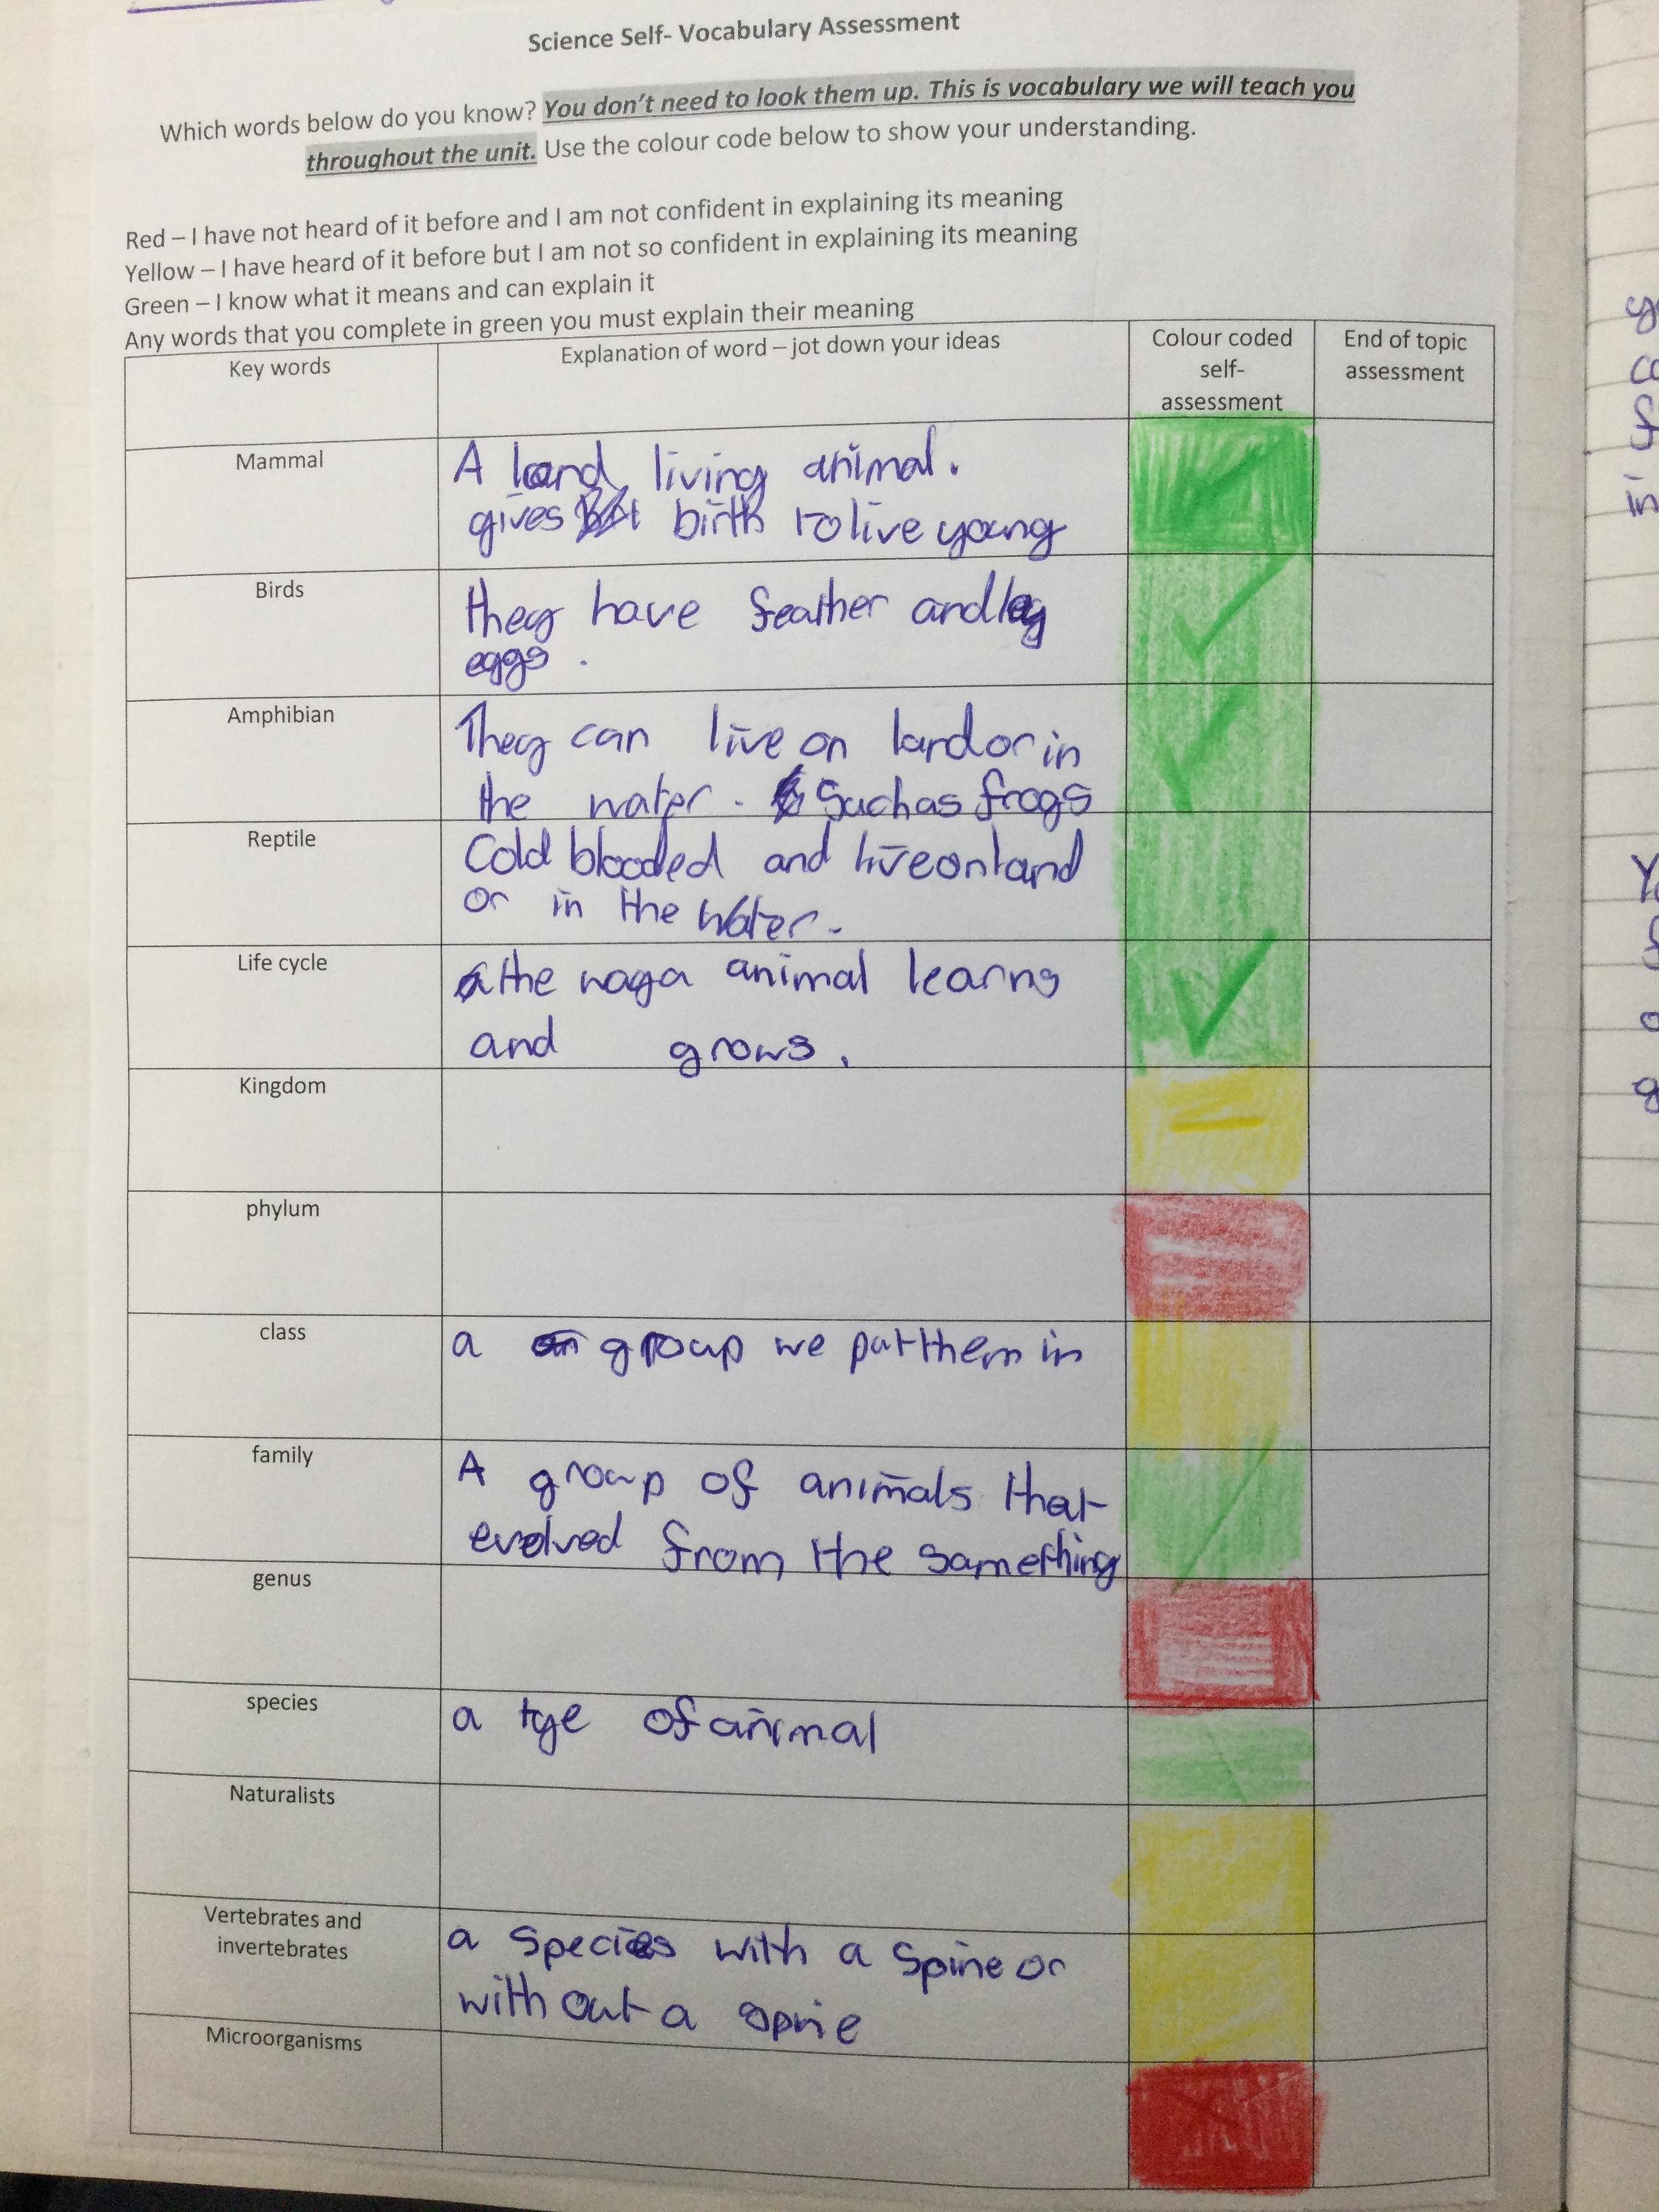 Science Self- Vocabulary Assessment
Which words below do you know? You don't need to look them up. This is vocabulary we will teach you
throughout the unit. Use the colour code below to show your understanding.
Red – I have not heard of it before and I am not confident in explaining its meaning
Yellow – I have heard of it before but I am not so confident in explaining its meaning
Green – I know what it means and can explain it
Any words that you complete in green you must explain their meaning
Key words
Explanation of word – jot down your ideas
Colour coded
self-
assessment
End of topic
assessment
Mammal
A land living animal.
gives birth to live young
Birds
they have feather and lay
eggs.
Amphibian
They can live on land or in
the water. Such as frogs
Reptile
Cold blooded and live on land
or in the water.
Life cycle
the way a animal learns
and grows.
Kingdom
phylum
class
a group we put them in
family
A group of animals that
evolved from the same thing
genus
species
a tye of animal
Naturalists
Vertebrates and
invertebrates
a species with a spine or
with out a spine
Microorganisms
in